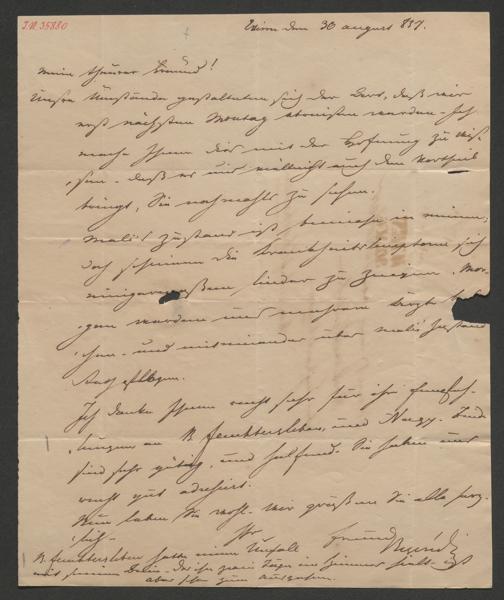 I.N. 35880
Wien den 30 august 837.
Mein theurer Freund!
Unsre Umstände gestalteten sich der Art, daß wir
erst nächsten Montag abreisen werden. Ich
mache Ihnen dies mit der Hoffnung zu wis-
sen, daß es mir vielleicht auch den Vortheil
bringt, Sie nochmahls zu sehen.
Mali's Zustand ist beinahe
doch scheinen die Krankheitssymptome sich
einigermaßen linder zu zeigen. Mor-
gen werden uns mehrere Ärzte
und miteinander über Mali's Zustand
Rath pflegen.
Ich danke Ihnen recht sehr für ihre Empfeh-
lungen an B. Feuchtersleben, und Nagy. Beide
sind sehr gütig, und helfend. Sie haben uns
recht gut adressirt.
Nun leben Sie wohl. Wir grüßen Sie alle herz-
lich. Ihr Freund
B. Feuchtersleben hatte einen Unfall
mit seinem Bein. Der ihn zwei Tage im Zimmer hielt. ist
aber schon zum ausgehen.